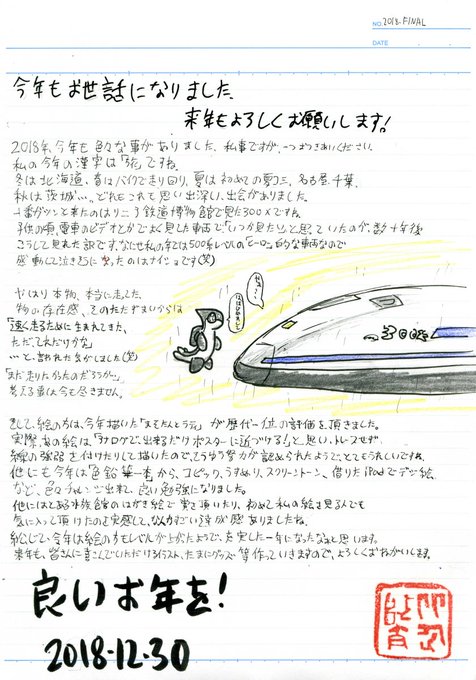 NO. 2018. FINAL
DATE
今年もお世話になりました、
来年もよろしくお願いします!
2018年、今年も色々な事がありました。私事ですが、一つおつきあいください。
私の今年の漢字は「旅」ですね。
冬は北海道、春はバイクで走り回り、夏は初めての夏コミ、名古屋、千葉、
秋は茨城…。どれもこれも思い出深い、出会がありました。
一番ガツンと来たのはリニア鉄道博物館で見た300Xですね。
子供の頃、電車のビデオとかでよく見た車両で「いつか見たい」と思っていたので、数十年後
こうして見れた訳です。なにせ私の中では500系レベルのヒーロー的な車両なので
感動して泣きそうになったのはナイショです(笑)
やはり本物、本当に走ってた
物の存在感、そのたたずまいからは
「速く走るために生まれてきた、
ただそれだけかな」
…と、言われた気がしました(笑)
「まだ走りたかったのだろうか…」
考える事は今も尽きません。
そして絵の方は、今年描いた「
」が歴代一位の評価を頂きました。
実際、あの絵は、「アナログで、出来るだけポスターに近づける!」と思い、トレスせず
線の強弱を付けたりして描いたので、そういう努力が認められたようでとてもうれしいですね。
他にも今年は「色鉛筆一本」から、コピック、うすぬり、スクリーントーン、借りたiPadでデジ絵、
など、色々チャレンジ出来て、良い勉強になりました。
他にはとある水族館のはがき絵で賞を頂いたり、初めて私の絵を見る人でも
気に入って頂けたのを実感して、なんかすごい年だ感ありましたね。
総じて、今年は絵の方もレベルが上がったようで、充実した一年になったなぁと思います。
来年も、皆さんに喜こんでいただけるイラスト、たまにグッズ等作っていきますので、よろしくおねがいします。
良いお年を!
2018-12-30